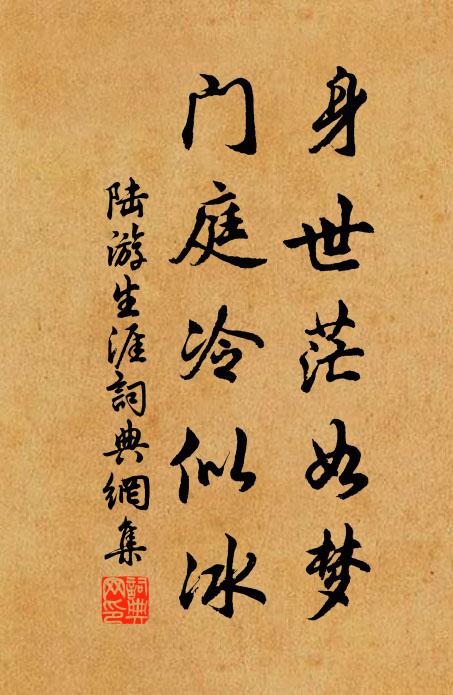 身世茫如梦
门庭冷似冰
陆游生涯詞典網集
詞典网印